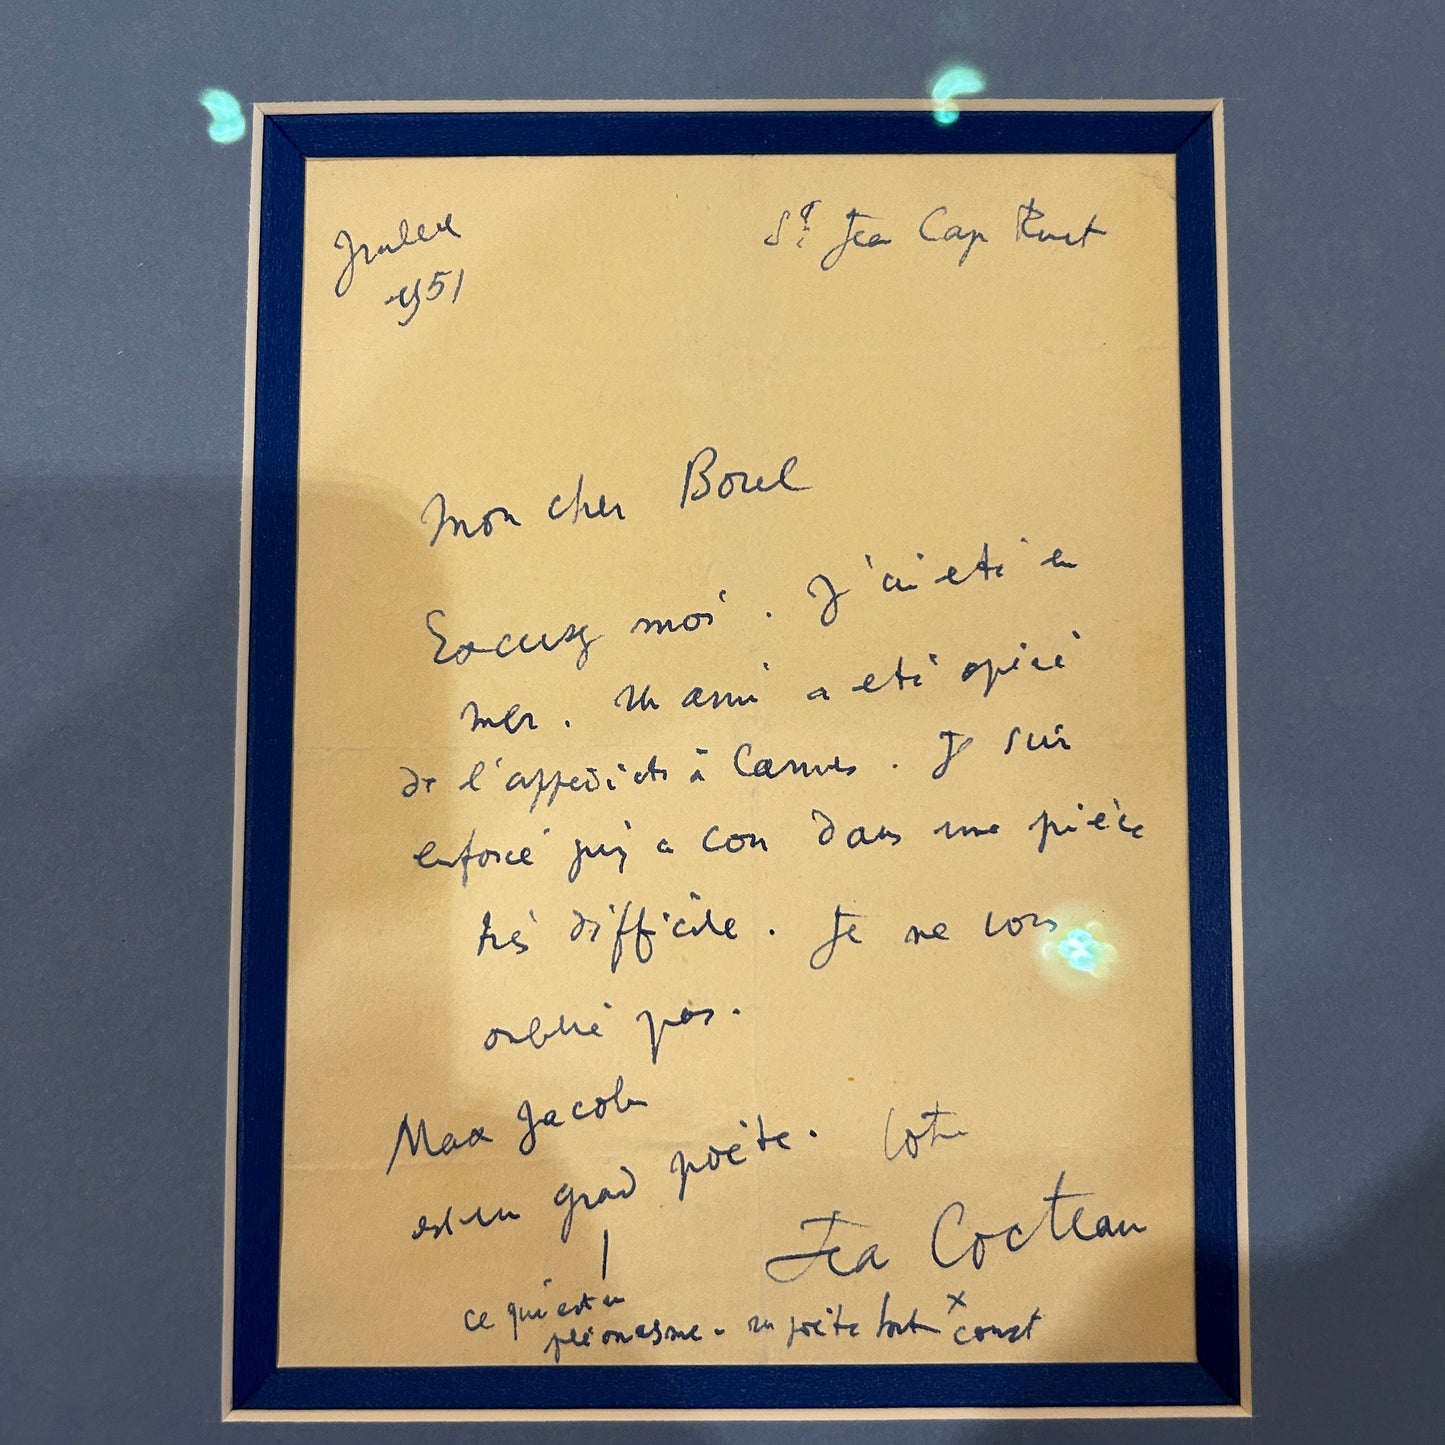 Juillet
1951
St Jean Cap Ferrat
Mon cher Borel
Excusez moi. J'ai été en
mer. Un ami a été opéré
de l'appendicite à Cannes. Je suis
enfoncé jusqu'au cou dans une pièce
très difficile. Je ne vous
oublie pas.
Max Jacob
est un grand poète. Votre
Jean Cocteau
ce qui est un
pléonasme. un poète tout court